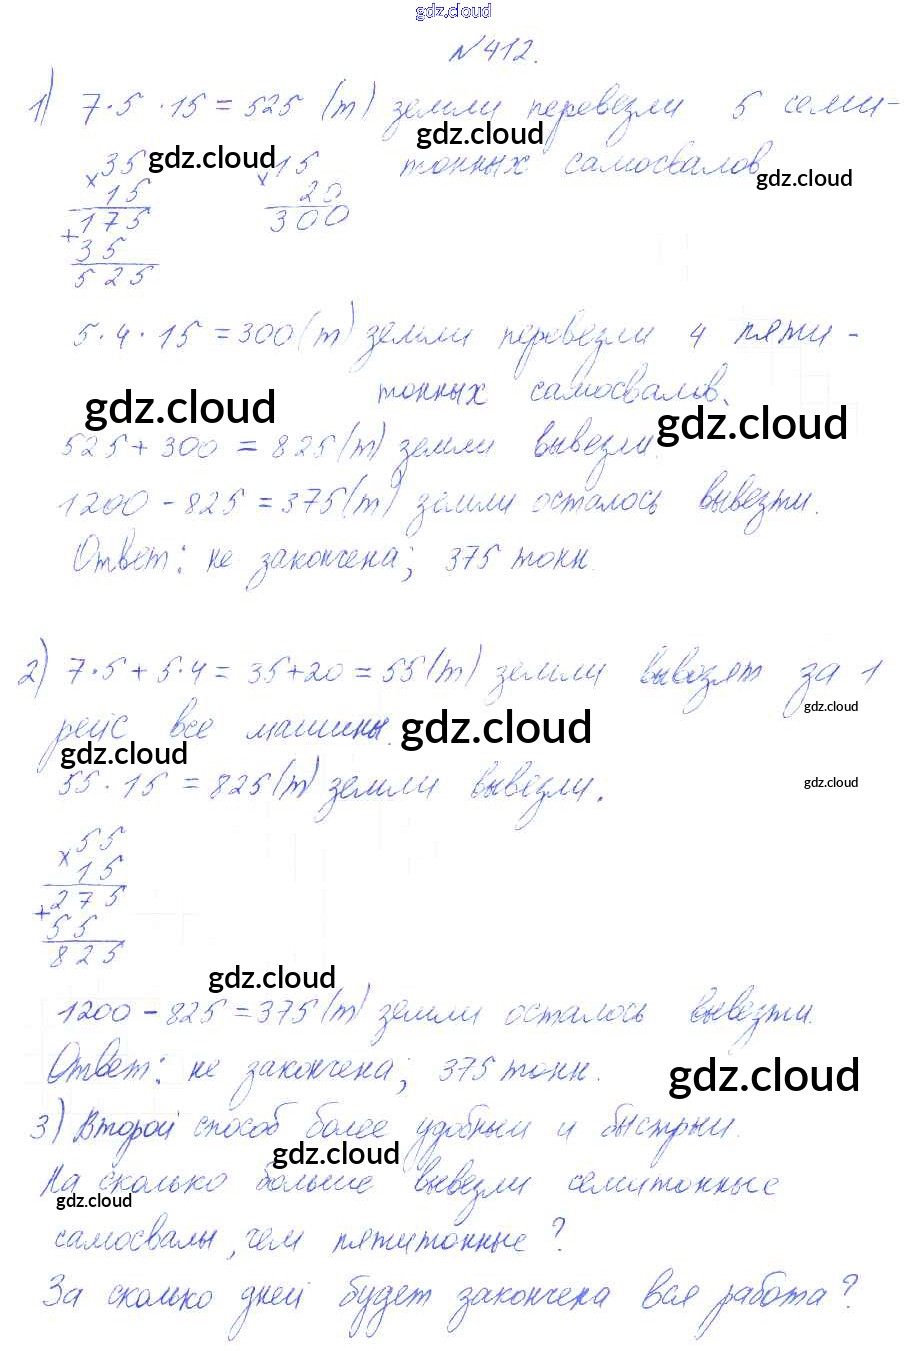 gdz.cloud
№412.
1) 7·5 ·15 = 525 (т) земли перевезли 5 семи-
gdz.cloud
тонных самосвалов
gdz.cloud
gdz.cloud
×35
15
+175
35
525
×15
20
300
5·4·15 = 300 (т) земли перевезли 4 пяти-
тонных самосвалов.
gdz.cloud
gdz.cloud
525 + 300 = 825 (т) земли вывезли.
1200 - 825 = 375 (т) земли осталось вывезти.
Ответ: не закончена; 375 тонн.
2) 7·5 + 5·4 = 35+20 = 55 (т) земли вывозят за 1
gdz.cloud
рейс все машины.
gdz.cloud
gdz.cloud
55·15 = 825 (т) земли вывезли.
gdz.cloud
×55
15
+275
55
825
gdz.cloud
1200 - 825 = 375 (т) земли осталось вывезти.
Ответ: не закончена; 375 тонн.
gdz.cloud
3) Второй способ более удобный и быстрый.
gdz.cloud
На сколько больше вывезли семитонные
gdz.cloud
самосвалы, чем пятитонные?
За сколько дней будет закончена вся работа?